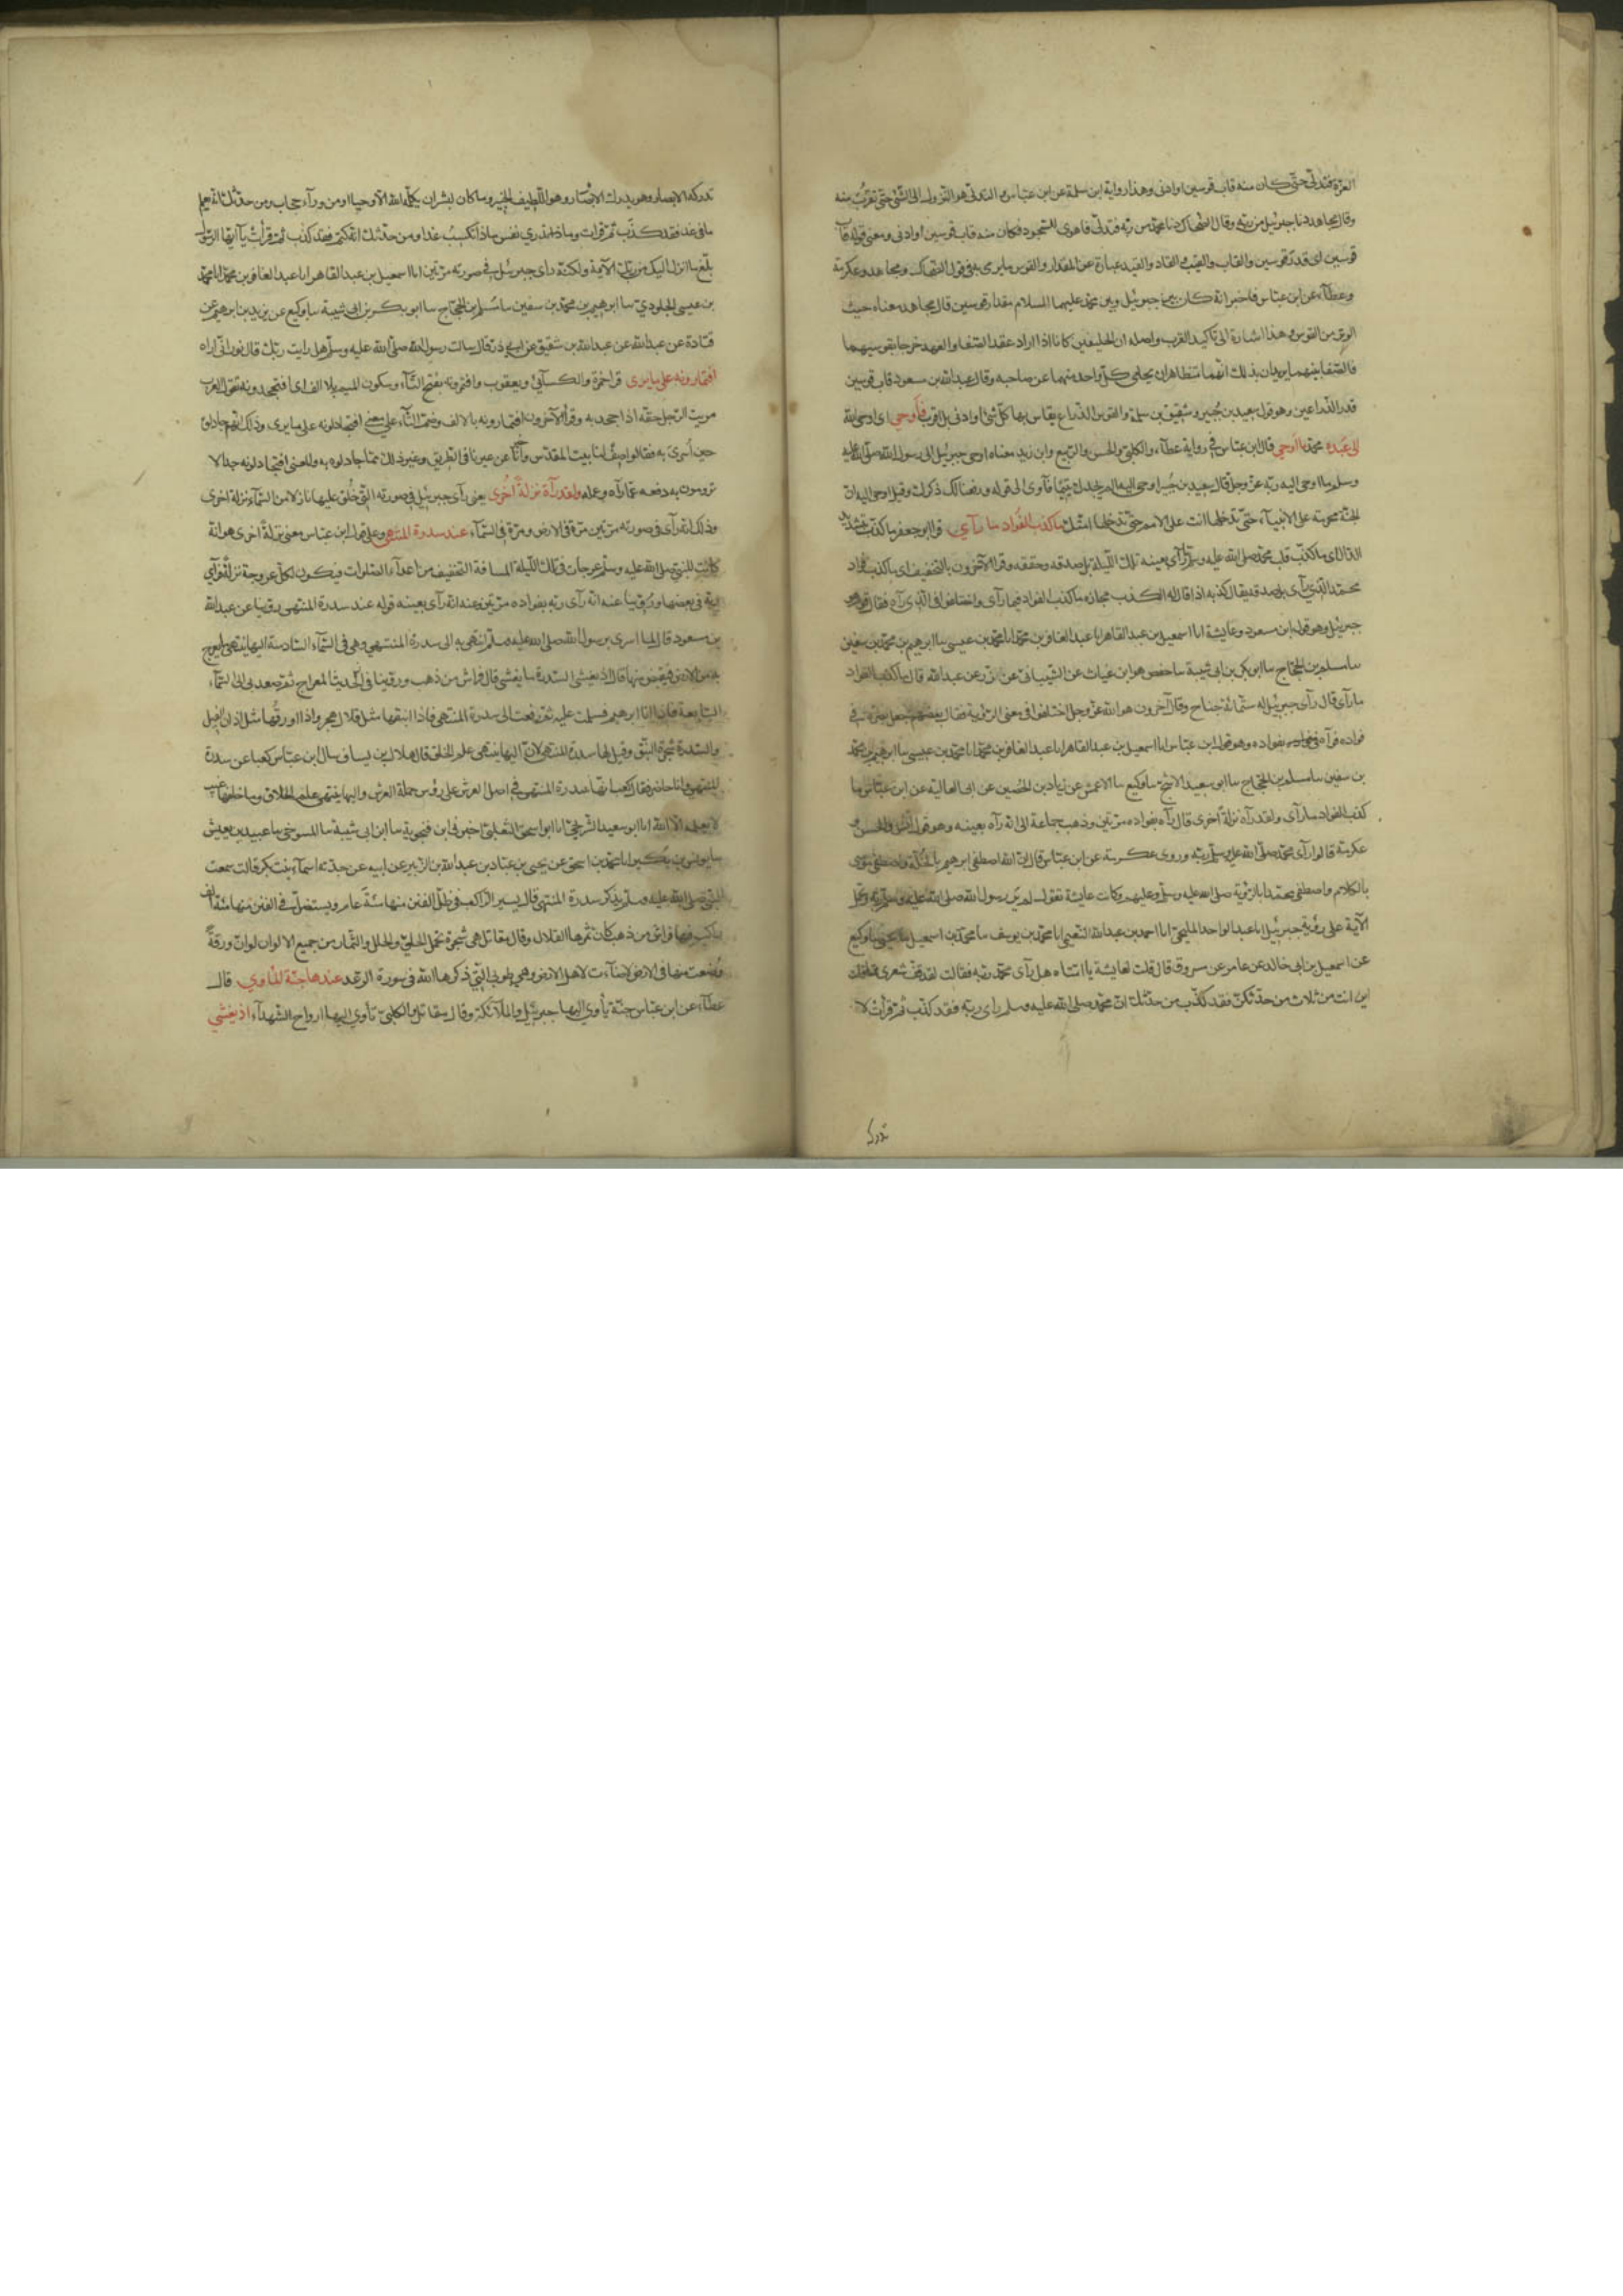 العزة فتدلى حتى كان منه قاب قوسين او ادنى وهذا رواية ابن سلمة عن ابن عباس والتدلى هو النزول الى الشئ حتى تقرب منه
وقال مجاهد دنا جبرئيل من ربه وقال الضحاك دنا محمد من ربه فتدلى فاهوى للسجود فكان منه قاب قوسين او ادنى ومعنى قوله قاب
قوسين اى قدر قوسين والقاب والقيب والقاد والقيد عبارة عن المقدار والقوس ما يرمى به فى قول الضحاك ومجاهد وعكرمة
وعطاء عن ابن عباس فاخبر انه كان بين جبرئيل وبين محمد عليهما السلام مقدار قوسين قال مجاهد معناه حيث
الوتر من القوس وهذا اشارة الى تاكيد القرب واصله ان الحليفين كانا اذا اراد عقد الصفا والعهد خرجا بقوسيهما
فالصقا بينهما يريدان بذلك انهما متظاهران يحامى كل واحد منهما عن صاحبه وقال عبد الله بن مسعود قاب قوسين
قدر الذراعين وهو قول سعيد بن جبير وشقيق بن سلمة والقوس الذراع يقاس بها كل شئ او ادنى بل اقرب فاوحى اى اوحى الله
الى عبده محمد ما اوحى قال ابن عباس فى رواية عطاء والكلبى والحسن والربيع وابن زيد معناه اوحى جبرئيل الى رسول الله صلى الله عليه
وسلم ما اوحى اليه ربه عز وجل قال سعيد بن جبير اوحى اليه الم يجدك يتيما فآوى الى قوله ورفعنا لك ذكرك وقيل اوحى اليه ان
الجنة محرمة على الانبياء حتى تدخلها انت وعلى الامم حتى تدخلها امتك ما كذب الفواد ما رآى قرا ابو جعفر ما كذب بتشديد
الذال اى ما كذب قلب محمد صلى الله عليه وسلم ما رآى بعينه تلك الليلة بل صدقه وحققه وقرا الآخرون بالتخفيف اى ما كذب فواد
محمد الذى رآى بل صدقه يقال كذبه اذا قال له الكذب مجازه ما كذب الفواد فيما رآى واختلفوا فى الذى رآه فقال قوم هو
جبرئيل وهو قول ابن مسعود وعايشة انا اسمعيل بن عبد القاهر انا عبد الغافر بن محمد انا محمد بن عيسى سا ابراهيم بن محمد بن سفين
سا مسلم بن الحجاج سا ابو بكر بن ابى شيبة سا حفص هو ابن غياث عن الشيبانى عن زر عن عبد الله قال ما كذب الفواد
ما رآى قال رآى جبرئيل له ستمائة جناح وقال آخرون هو الله عز وجل اختلفوا فى معنى الروية فقال بعضهم جعل بصره فى
فواده فرآه بفواده وهو قول ابن عباس انا اسمعيل بن عبد القاهر انا عبد الغافر بن محمد انا محمد بن عيسى سا ابراهيم بن محمد
بن سفين سا مسلم بن الحجاج سا ابو سعيد الاشج سا وكيع سا الاعمش عن زياد بن الحصين عن ابى العالية عن ابن عباس ما
كذب الفواد ما رآى ولقد رآه نزلة اخرى قال رآه بفواده مرتين وذهب جماعة الى انه رآه بعينه وهو قول انس والحسن و
عكرمة قالوا رآى محمد صلى الله عليه وسلم ربه وروى عكرمة عن ابن عباس قال ان الله اصطفى ابراهيم بالخلة واصطفى موسى
بالكلام واصطفى محمدا بالروية صلى الله عليه وسلم وعليهم وكانت عايشة تقول لم ير رسول الله صلى الله عليه وسلم ربه وتحمل
الآية على روية جبرئيل انا عبد الواحد المليحى انا احمد بن عبد الله النعيمى انا محمد بن يوسف سا محمد بن اسمعيل سا يحيى سا وكيع
عن اسمعيل بن ابى خالد عن عامر عن مسروق قال قلت لعايشة يا امتاه هل رآى محمد ربه فقالت لقد قف شعرى مما قلت
اين انت من ثلاث من حدثكن فقد كذب من حدثك ان محمد صلى الله عليه وسلم رآى ربه فقد كذب ثم قرات لا
تدركه
تدركه الابصار وهو يدرك الابصار وهو اللطيف الخبير وما كان لبشر ان يكلمه الله الا وحيا او من وراء حجاب ومن حدثك انه يعلم
ما فى غد فقد كذب ثم قرات وما تدرى نفس ماذا تكسب غدا ومن حدثك انه كتم فقد كذب ثم قرات يا ايها الرسول
بلغ ما انزل اليك من ربك الآية ولكنه راى جبرئيل فى صورته مرتين انا اسمعيل بن عبد القاهر انا عبد الغافر بن محمد انا محمد
بن عيسى الجلودى سا ابراهيم بن محمد بن سفين سا مسلم بن الحجاج سا ابو بكر بن ابى شيبة سا وكيع عن يزيد بن ابراهيم عن
قتادة عن عبد الله بن شقيق عن ابى ذر قال سالت رسول الله صلى الله عليه وسلم هل رايت ربك قال نور انى اراه
افتمارونه على ما يرى قرا حمزة والكسائى ويعقوب وافتمرونه بفتح التاء وسكون الميم بلا الف اى افتجحدونه تقول العرب
مريت الرجل حقه اذا جحدته وقرا الآخرون افتمارونه بالالف وضم التاء على معنى افتجادلونه على ما يرى وذلك انهم جادلوه
حين اسرى به فقالوا صف لنا بيت المقدس واخبرنا عن عيرنا فى الطريق وغير ذلك مما جادلوه به والمعنى افتجادلونه جدالا
ترومون به دفعه عما رآه وعلمه ولقد رآه نزلة اخرى يعنى رآى جبرئيل فى صورته التى خلق عليها نازلا من السماء نزلة اخرى
وذلك انه رآى فى صورته مرتين مرة فى الارض ومرة فى السماء عند سدرة المنتهى وعلى قول ابن عباس معنى نزلة اخرى هو انه
كانت للنبى صلى الله عليه وسلم عرجات فى تلك الليلة لمسافة التخفيف من اعداد الصلوات فيكون لكل عرجة نزلة فرآى
ربه فى بعضها وروينا عنه انه رآى ربه بفواده مرتين وعنه انه رآى بعينه قوله عند سدرة المنتهى روينا عن عبد الله
بن مسعود قال لما اسرى برسول الله صلى الله عليه وسلم انتهى به الى سدرة المنتهى وهى فى السماء السادسة اليها ينتهى ما يعرج
به من الارض فيقبض منها قال اذ يغشى السدرة ما يغشى قال فراش من ذهب وروينا فى حديث المعراج ثم صعد بى الى السماء
السابعة فاذا انا ابراهيم فسلمت عليه ثم رفعت الى سدرة المنتهى فاذا نبقها مثل قلال هجر واذا ورقها مثل اذان الفيل
والسدرة شجرة النبق وقيل لها سدرة المنتهى لانه اليها ينتهى علم الخلق قال هلال بن يساف سال ابن عباس كعبا عن سدرة
المنتهى وانا حاضر فقال كعب انها سدرة المنتهى فى اصل العرش على رؤس حملة العرش واليها ينتهى علم الخلائق وما خلفها غيب
لا يعلمه الا الله انا ابو سعيد الشريحى انا ابو اسحق الثعلبى اخبرنى ابن فنجوية سا ابن ابى شيبة سا المسوحى سا عبيد بن يعيش
سا يونس بن بكير انا محمد بن اسحق عن يحيى بن عباد بن عبد الله بن الزبير عن ابيه عن جدته اسماء بنت بكر قالت سمعت
النبى صلى الله عليه وسلم يذكر سدرة المنتهى قال يسير الراكب فى ظل الفنن منها مئة عام ويستظل فى الفنن منها مئة الف
راكب فيها فراش من ذهب كان ثمرها القلال وقال مقاتل هى شجرة تحمل الحلى والحلل والثمار من جميع الالوان لو ان ورقة
وضعت منها فى الارض لاضاءت لاهل الارض وهى طوبى التى ذكرها الله فى سورة الرعد عندها جنة الماوى قال
عطاء عن ابن عباس جنة يأوى اليها جبرئيل والملائكة وقال مقاتل والكلبى تأوى اليها ارواح الشهداء اذ يغشى